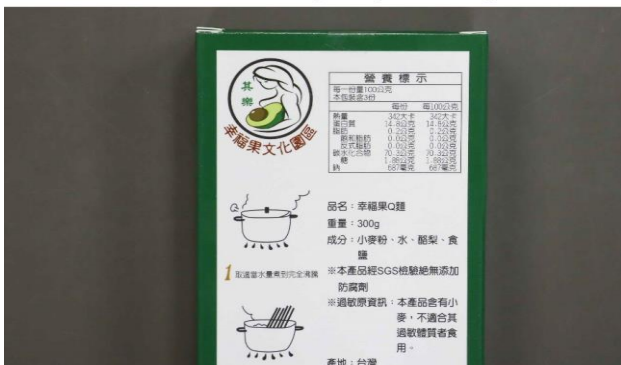 其
樂
幸福果文化園區
營養標示
每一份量100公克
本包裝含3份
每份 每100公克
熱量 342大卡 342大卡
蛋白質 14.8公克 14.8公克
脂肪 0.2公克 0.2公克
飽和脂肪 0.0公克 0.0公克
反式脂肪 0.0公克 0.0公克
碳水化合物 70.3公克 70.3公克
糖 1.88公克 1.88公克
鈉 687毫克 687毫克
品名：幸福果Q麵
重量：300g
成分：小麥粉、水、酪梨、食
鹽
※本產品經SGS檢驗絕無添加
防腐劑
※過敏原資訊：本產品含有小
麥，不適合其
過敏體質者食
用。
產地：台灣
1 取適當水量煮到完全沸騰